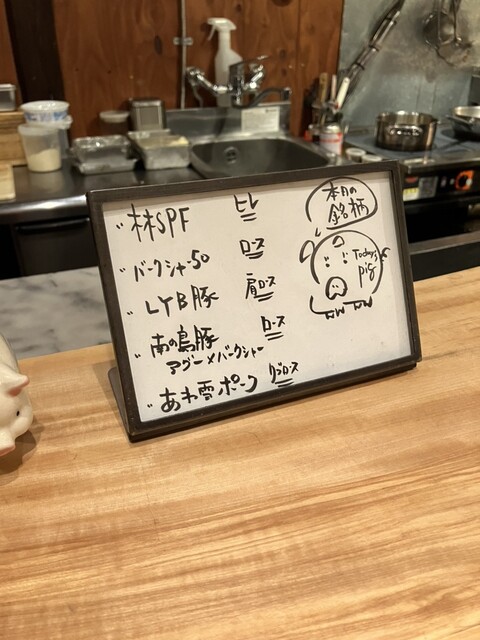 林SPF ヒレ
バークシャー50 ロース
LYB豚 肩ロース
南の島豚 ロース
アグー×バークシャー
あわ雪ポーク リブロース
本日の
銘柄
Today's
pig